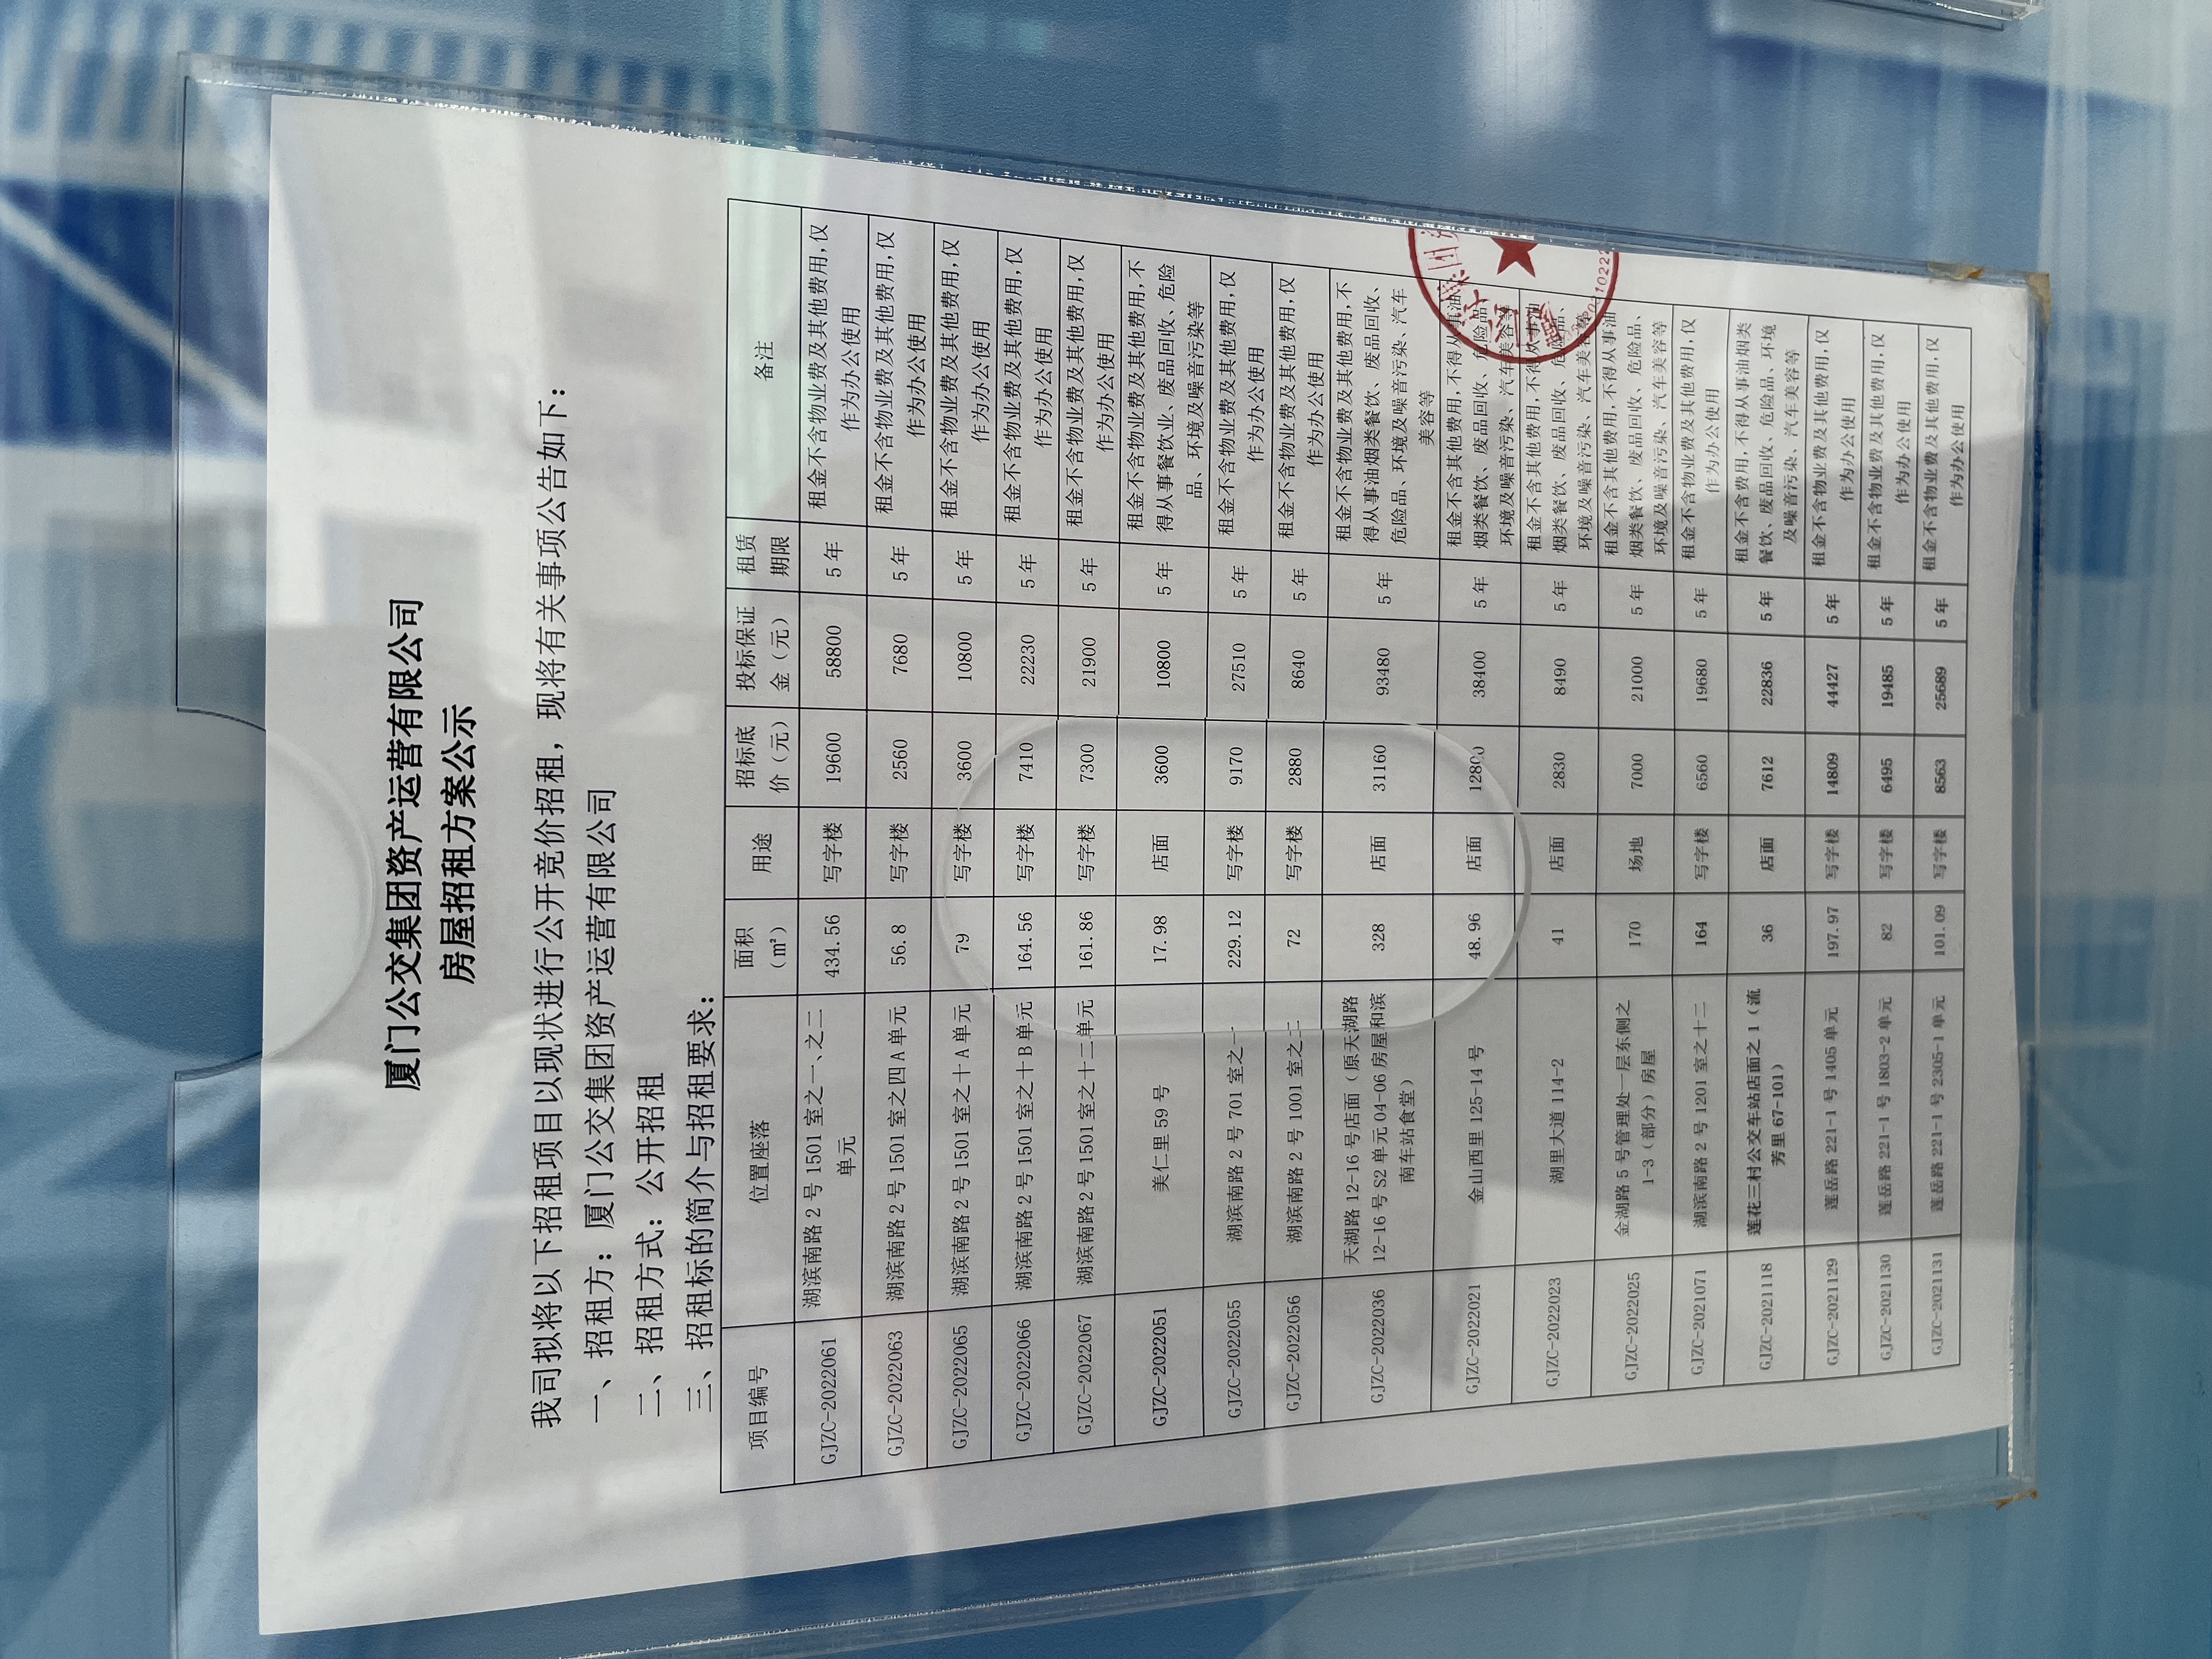 厦门公交集团资产运营有限公司
房屋招租方案公示
我司拟将以下招租项目以现状进行公开竞价招租，现将有关事项公告如下：
一、招租方：厦门公交集团资产运营有限公司
二、招租方式：公开招租
三、招租标的简介与招租要求：
项目编号 位置座落 面积（㎡） 用途 招标底价（元） 投标保证金（元） 租赁期限 备注
GJZC-2022061 湖滨南路2号1501室之一、之二单元 434.56 写字楼 19600 58800 5年 租金不含物业费及其他费用,仅作为办公使用
GJZC-2022063 湖滨南路2号1501室之四A单元 56.8 写字楼 2560 7680 5年 租金不含物业费及其他费用,仅作为办公使用
GJZC-2022065 湖滨南路2号1501室之十A单元 79 写字楼 3600 10800 5年 租金不含物业费及其他费用,仅作为办公使用
GJZC-2022066 湖滨南路2号1501室之十B单元 164.56 写字楼 7410 22230 5年 租金不含物业费及其他费用,仅作为办公使用
GJZC-2022067 湖滨南路2号1501室之十二单元 161.86 写字楼 7300 21900 5年 租金不含物业费及其他费用,仅作为办公使用
GJZC-2022051 美仁里59号 17.98 店面 3600 10800 5年 租金不含物业费及其他费用,不得从事餐饮业、废品回收、危险品、环境及噪音污染等
GJZC-2022055 湖滨南路2号701室之一 229.12 写字楼 9170 27510 5年 租金不含物业费及其他费用,仅作为办公使用
GJZC-2022056 湖滨南路2号1001室之二 72 写字楼 2880 8640 5年 租金不含物业费及其他费用,仅作为办公使用
GJZC-2022036 天湖路12-16号店面（原天湖路12-16号S2单元04-06房屋和滨南车站食堂） 328 店面 31160 93480 5年 租金不含物业费及其他费用,不得从事油烟类餐饮、废品回收、危险品、环境及噪音污染、汽车美容等
GJZC-2022021 金山西里125-14号 48.96 店面 12800 38400 5年 租金不含其他费用,不得从事油烟类餐饮、废品回收、危险品、环境及噪音污染、汽车美容等
GJZC-2022023 湖里大道1114-2 41 店面 2830 8490 5年 租金不含其他费用,不得从事油烟类餐饮、废品回收、危险品、环境及噪音污染、汽车美容等
GJZC-2022025 金湖路5号管理处一层东侧之1-3（部分）房屋 170 场地 7000 21000 5年 租金不含其他费用,不得从事油烟类餐饮、废品回收、危险品、环境及噪音污染、汽车美容等
GJZC-2021071 湖滨南路2号1201室之十二 164 写字楼 6560 19680 5年 租金不含物业费及其他费用,仅作为办公使用
GJZC-2021118 莲花三村公交车站店面之1（流芳里67-101） 36 店面 7612 22836 5年 租金不含费用,不得从事油烟类餐饮、废品回收、危险品、环境及噪音污染、汽车美容等
GJZC-2021129 莲岳路221-1号1405单元 197.97 写字楼 14809 44427 5年 租金不含物业费及其他费用,仅作为办公使用
GJZC-2021130 莲岳路221-1号1803-2单元 82 写字楼 6495 19485 5年 租金不含物业费及其他费用,仅作为办公使用
GJZC-2021131 莲岳路221-1号2305-1单元 101.09 写字楼 8563 25689 5年 租金不含物业费及其他费用,仅作为办公使用